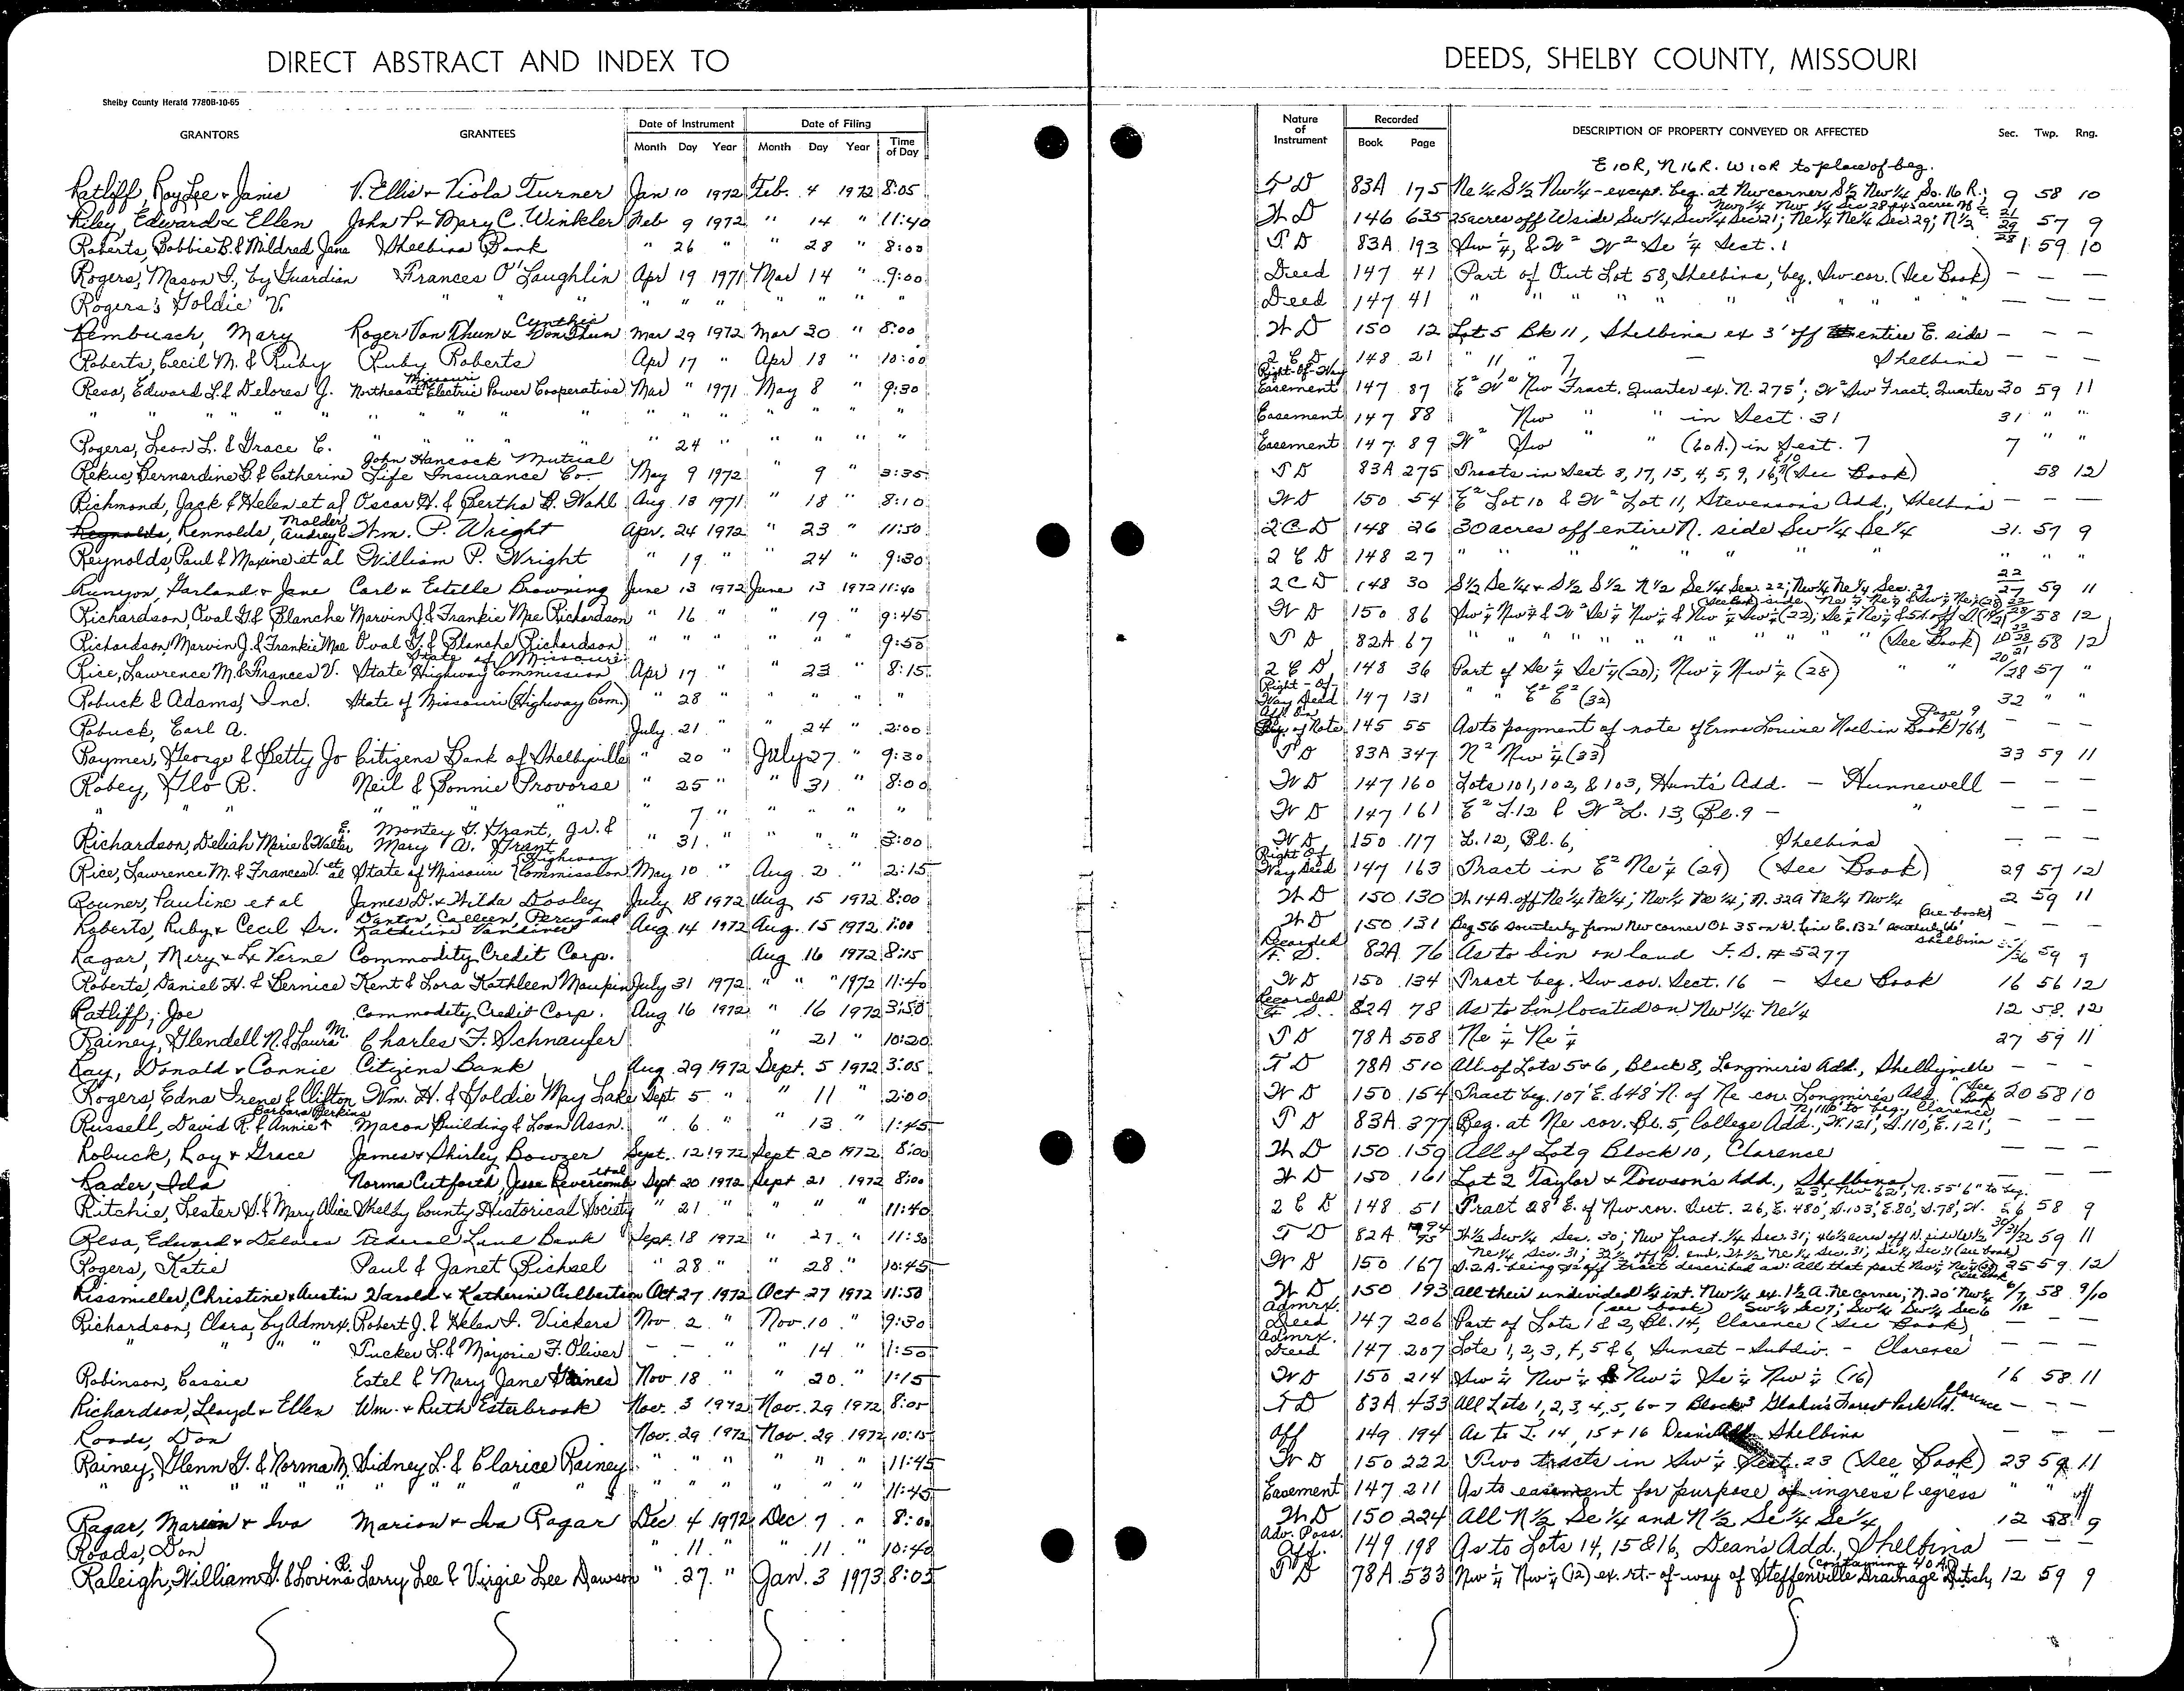 DIRECT ABSTRACT AND INDEX TO DEEDS, SHELBY COUNTY, MISSOURI
Shelby County Herald 7780B-10-65
GRANTORS GRANTEES Date of Instrument Date of Filing Nature of Instrument Recorded DESCRIPTION OF PROPERTY CONVEYED OR AFFECTED Sec. Twp. Rng.
Month Day Year Month Day Year Time of Day Book Page
E 10 R, N 16 R. W 10 R to place of beg.
Ratliff, Roy Lee & Janis V. Ellis & Viola Turner Jan 10 1972 Feb. 4 1972 8:05 T D 83A 175 Ne 1/4 S 1/2 Nw 1/4 - except. beg. at Nw corner S 1/2 Nw 1/4 So. 16 R. 9 58 10
Riley, Edward & Ellen John P. & Mary C. Winkler Feb 9 1972 " 14 " 11:40 W D 146 635 25 acres off W side Sw 1/4 Sw 1/4 Sec 21; Ne 1/4 Ne 1/4 Sec 29; N 1/2 21 29 28 57 9
Roberts, Bobbie B. & Mildred Jane Shelbina Bank " 26 " " 28 " 8:00 T D 83A 193 Sw 1/4, & W² W² Se 1/4 Sect. 1 1 59 10
Rogers, Mason I., by Guardian Frances O'Laughlin Apr 19 1971 Mar 14 " 9:00 Deed 147 41 Part of Out Lot 58, Shelbina, beg. Sw cor. (See Book) — — —
Rogers, Goldie V. " " " " " " " " " " Deed 147 41 " " " " " " " — — —
Rembusch, Mary Roger Von Thun & Cynthia Von Thun Mar 29 1972 Mar 30 " 8:00 W D 150 12 Lot 5 Bk 11, Shelbina ex 3' off entire E. side — — —
Roberts, Cecil M. & Ruby Ruby Roberts Apr 17 " Apr 18 " 10:00 2 C D 148 21 " 11, " 7, — Shelbina — — —
Resa, Edward L. & Delores J. Northeast Missouri Electric Power Cooperative Mar " 1971 May 8 " 9:30 Right-Of-Way Easement 147 87 E² W² Nw Fract. Quarter ex. N. 275'; W² Sw Fract. Quarter 30 59 11
" " " " " " " " " " " " Easement 147 88 Nw " " in Sect. 31 31 " "
Rogers, Leon L. & Grace C. " " " " " 24 " " " " " Easement 147 89 W² Sw " " (60A.) in Sect. 7 7 " "
Rekus, Bernardine B. & Catherine John Hancock Mutual Life Insurance Co. May 9 1972 " 9 " 3:35 T D 83A 275 Tracts in Sect 8, 17, 15, 4, 5, 9, 16, & 10 (See Book) 58 12
Richmond, Jack & Helen et al Oscar H. & Bertha B. Wahl Aug. 18 1971 " 18 " 8:10 W D 150 54 E² Lot 10 & W² Lot 11, Stevenson's Add., Shelbina — — —
Rennolds, Audrey Wm. P. Wright Apr. 24 1972 " 23 " 11:50 2 C D 148 26 30 acres off entire N. side Sw 1/4 Se 1/4 31 57 9
Reynolds, Paul & Maxine et al William P. Wright " 19 " " 24 " 9:30 2 C D 148 27 " " " " " " " " " "
Runyon, Garland & Jane Carl & Estelle Browning June 13 1972 June 13 1972 11:40 2 C D 148 30 S 1/2 Se 1/4 & S 1/2 S 1/2 N 1/2 Se 1/4 Sec. 22; Nw 1/4 Ne 1/4 Sec. 27 22 27 59 11
Richardson, Oval G. & Blanche Marvin J. & Frankie Mae Richardson " 16 " " 19 " 9:45 W D 150 86 58 12
Richardson, Marvin J. & Frankie Mae Oval G. & Blanche Richardson " " " " " " 9:50 T D 82A 67 " " " " " " " (See Book) 58 12
Rice, Lawrence M. & Frances V. State of Missouri State Highway Commission Apr 17 " " 23 " 8:15 2 C D 148 36 Part of Se 1/4 Se 1/4 (20); Nw 1/4 Nw 1/4 (28) 57 "
Robuck & Adams, Inc. State of Missouri (Highway Com.) " 28 " " " " " Right-Of-Way Deed 147 131 " " E² E² (32) 32 " "
Robuck, Earl A. July 21 " " 24 " 2:00 145 55 As to payment of note of Erma Louise Noel in Book 76A, Page 9 — — —
Raymer, George & Betty Jo Citizens Bank of Shelbyville " 20 " July 27 " 9:30 T D 83A 347 N² Nw 1/4 (33) 33 59 11
Robey, Flo R. Neil & Bonnie Provorse " 25 " " 31 " 8:00 W D 147 160 Lots 101, 102, & 103, Hunt's Add. — Hunnewell — — —
" " " " " " 7 " " " " " W D 147 161 E² L. 12 & W² L. 13, Bl. 9 — " — — —
Richardson, Deliah Marie & Walter E. Montey G. Grant, Jr. & Mary A. Grant " 31 " " " " 3:00 W D 150 117 L. 12, Bl. 6, Shelbina — — —
Rice, Lawrence M. & Frances V. et al State of Missouri (Highway Commission May 10 " Aug. 2 " 2:15 Right Of Way Deed 147 163 Tract in E² Ne 1/4 (29) (See Book) 29 57 12
Rouner, Pauline et al James D. & Hilda Dooley July 18 1972 Aug 15 1972 8:00 W D 150 130 W 14 A. off Ne 1/4 Ne 1/4; Nw 1/4 Ne 1/4; N. 32 A Ne 1/4 Nw 1/4 2 59 11
Roberts, Ruby & Cecil Sr. Danton, Colleen, Percy and Katherine Vandiver Aug 14 1972 Aug. 15 1972 1:00 W D 150 131 Beg 56 Southerly from Nw corner OL 35 on W. line E. 132' Southerly (see book) Shelbina — — —
Ragar, Mery & La Verne Commodity Credit Corp. Aug 16 1972 8:15 Recorded F. S. 82A 76 As to bin on land F. S. # 5277 59 9
Roberts, Daniel H. & Bernice Kent & Lora Kathleen Maupin July 31 1972 " " 1972 11:40 W D 150 134 Tract beg. Sw cor. Sect. 16 — See Book 16 56 12
Ratliff, Joe Commodity Credit Corp. Aug 16 1972 " 16 1972 3:50 Recorded F. S. 82A 78 As to bin located on Nw 1/4 Ne 1/4 12 58 12
Rainey, Glendell N. & Laura M. Charles F. Schnaufer " 21 " 10:20 T D 78A 508 Ne 1/4 Ne 1/4 27 59 11
Ray, Donald & Connie Citizens Bank Aug 29 1972 Sept. 5 1972 3:05 T D 78A 510 All of Lots 5 & 6, Block 8, Longmire's Add., Shelbyville — — —
Rogers, Edna Irene & Clifton Wm. H. & Goldie May Lake Sept 5 " " 11 " 2:00 W D 150 154 Tract beg. 107' E. & 48' N. of Ne cor. Longmire's Add. (See Book 20 58 10
Russell, David R. & Annie & Barbara Perkins Macon Building & Loan Assn. " 6 " " 13 " 1:45 T D 83A 377 Beg. at Ne cor. Bl. 5, College Add., W. 121', S. 110', E. 121', N. 110' to beg., Clarence — — —
Robuck, Roy & Grace James & Shirley Bowzer Sept. 12 1972 Sept 20 1972 8:00 W D 150 159 All of Lot 9 Block 10, Clarence — — —
Rader, Ida Norma Cutforth, Jesse Revercomb et al Sept 20 1972 Sept 21 1972 8:00 W D 150 161 Lot 2 Taylor & Towson's Add., Shelbina — — —
Ritchie, Lester S. & Mary Alice Shelby County Historical Society " 21 " " " " 11:40 2 C D 148 51 Tract 28' E. of Nw cor. Sect. 26, E. 480', S. 103', E. 80', S. 78', W. 23', Nw 62', N. 55' 6" to beg. 26 58 9
Resa, Edward & Delores Federal Land Bank Sept. 18 1972 " 27 " 11:30 T D 82A W 1/2 Sw 1/4 Sec. 30; Nw fract. 1/4 Sec. 31; 59 11
Rogers, Katie Paul & Janet Bichsel " 28 " " 28 " 10:45 W D 150 167 25 59 12
Rissmiller, Christine & Austin Harold & Katherine Culbertson Oct 27 1972 Oct 27 1972 11:50 W D 150 193 All their undivided 1/2 int. Nw 1/4 ex. 1 1/2 A. Ne corner; 58 9/10
Richardson, Clara, by Admrx. Robert J. & Helen I. Vickers Nov. 2 " Nov. 10 " 9:30 Admrx. Deed 147 206 Part of Lots 1 & 2, Bl. 14, Clarence (See Book) — — —
" " " " Tucker L. & Marjorie F. Oliver — — " " 14 " 1:50 Admrx. Deed 147 207 Lots 1, 2, 3, 4, 5 & 6, Sunset - Subdiv. - Clarence — — —
Robinson, Cassie Estel & Mary Jane Gaines Nov. 18 " " 20 " 1:15 W D 150 214 Sw 1/4 Nw 1/4 & Nw 1/4 Se 1/4 Nw 1/4 (16) 16 58 11
Richardson, Lloyd & Ellen Wm. & Ruth Esterbrook Nov. 3 1972 Nov. 29 1972 8:05 T D 83A 433 All Lots 1, 2, 3, 4, 5, 6 & 7 Block 3 Forest Park Ad. Clarence — — —
Roads, Don Nov. 29 1972 Nov. 29 1972 10:15 Aff 149 194 As to L. 14, 15 & 16 Dean's Add Shelbina — — —
Rainey, Glenn G. & Norma M. Sidney L. & Clarice Rainey " " " " " " 11:45 W D 150 222 Two tracts in Sw 1/4 Sect. 23 (See Book) 23 59 11
" " " " " " " " " " " 11:45 Easement 147 211 As to easement for purpose of ingress & egress " " "
Ragar, Marion & Iva Marion & Iva Ragar Dec 4 1972 Dec 7 " 8:00 W D 150 224 All N 1/2 Se 1/4 and N 1/2 Se 1/4 Se 1/4 12 58 9
Roads, Don " 11 " " 11 " 10:40 Adv. Poss. Aff. 149 198 As to Lots 14, 15 & 16, Dean's Add., Shelbina — — —
Raleigh, William G. & Lovina B. Larry Lee & Virgie Lee Dawson " 27 " Jan. 3 1973 8:05 T D 78A 533 Nw 1/4 Nw 1/4 (12) ex. rt.-of-way of Steffenville Drainage Ditch, (containing 40 A.) 12 59 9